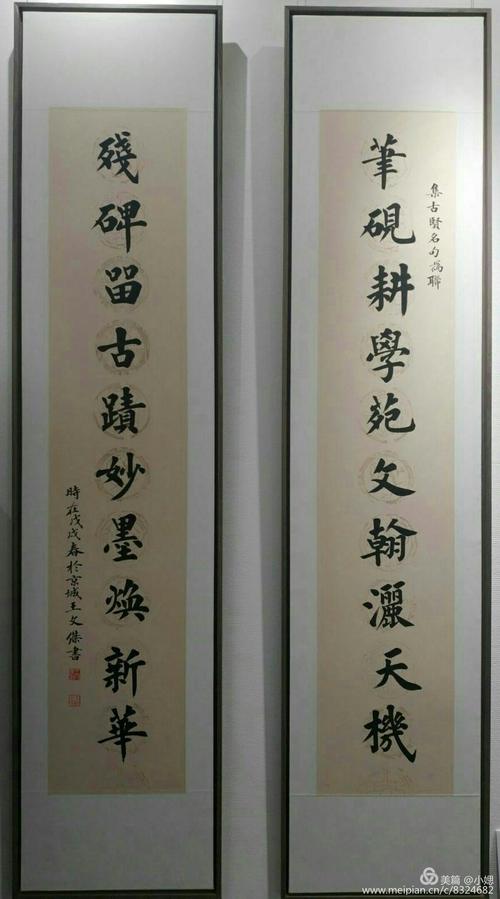 集古賢名句為聯
筆硯耕學苑文翰灑天機
殘碑留古蹟妙墨煥新華
時在戊戌春於京城王文傑書
美篇 @小媤
www.meipian.cn/c/8324682